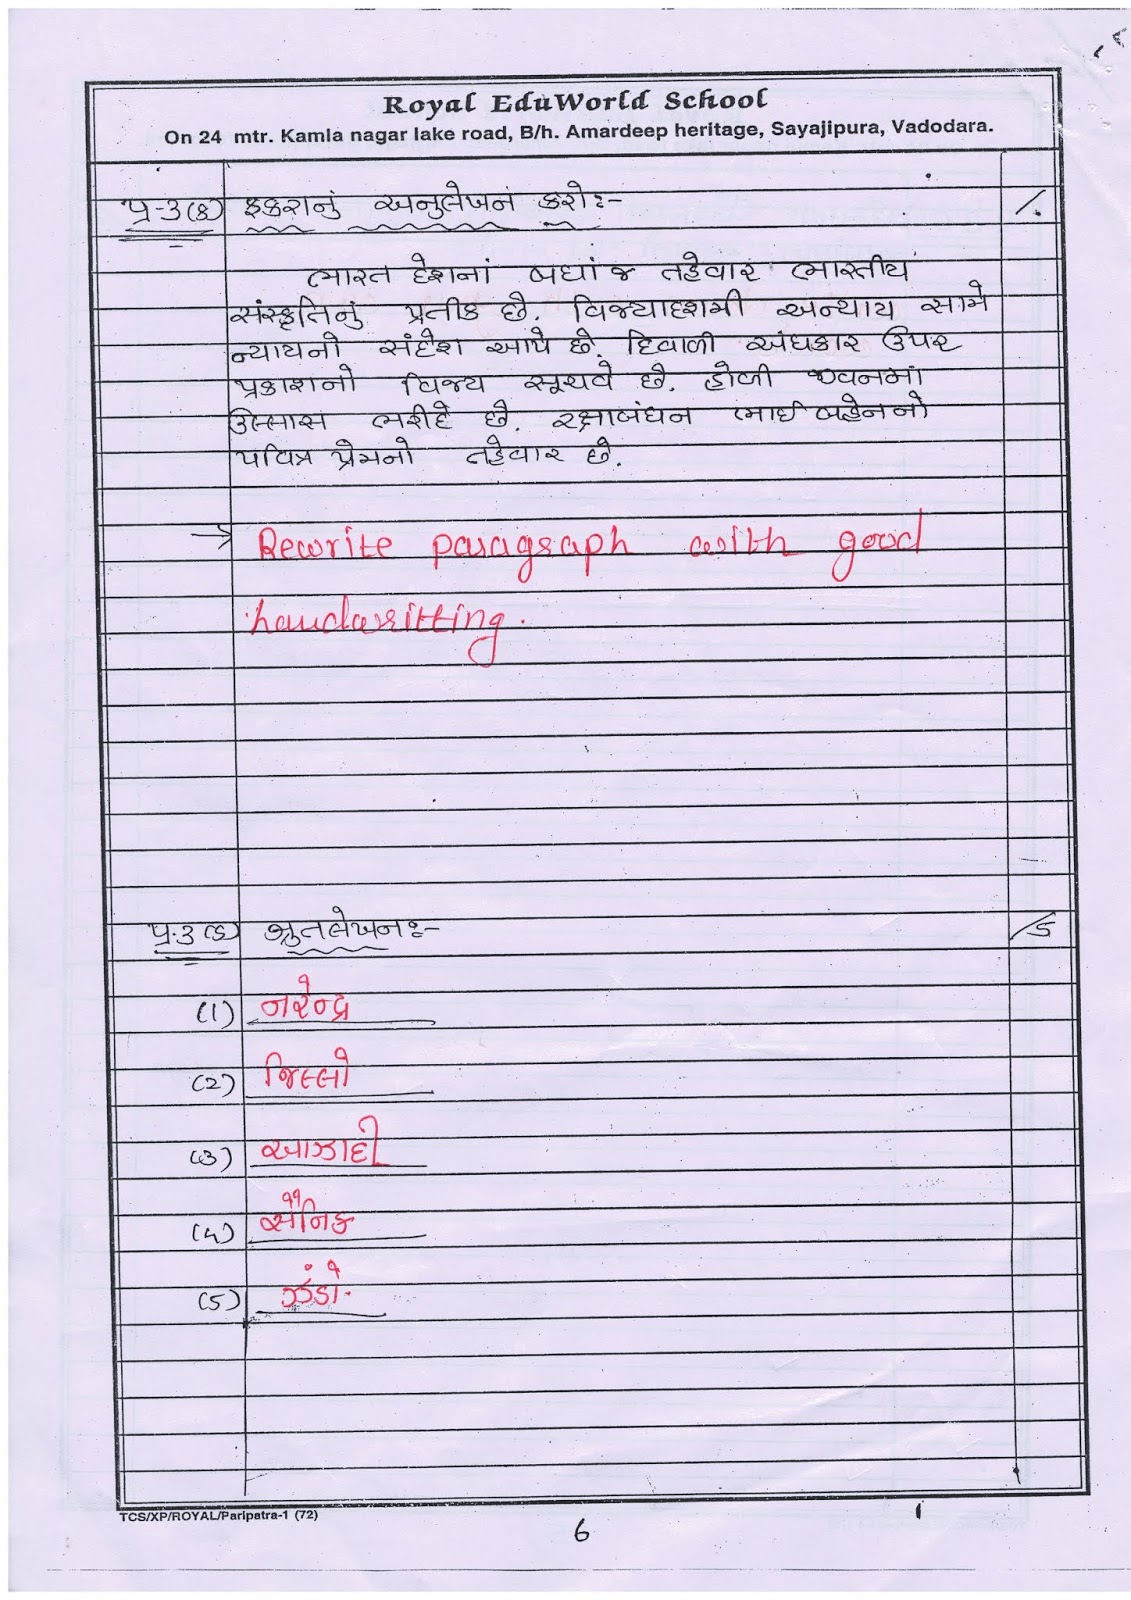 Royal EduWorld School
On 24 mtr. Kamla nagar lake road, B/h. Amardeep heritage, Sayajipura, Vadodara.
પ્ર-૩(ક) ફકરાનું અનુલેખન કરો:-
ભારત દેશનાં બધાં જ તહેવાર ભારતીય
સંસ્કૃતિનું પ્રતીક છે. વિજ્યાદશમી અન્યાય સામે
ન્યાયનો સંદેશ આપે છે. દિવાળી અંધકાર ઉપર
પ્રકાશનો વિજ્ય સૂચવે છે. હોળી જીવનમાં
ઉલ્લાસ ભરીદે છે. રક્ષાબંધન ભાઈ બહેનનો
પવિત્ર પ્રેમનો તહેવાર છે.
→ Rewrite paragraph with good
handwritting.
પ્ર.૩(ડ) શ્રુતલેખન:- /5
(1) નરેન્દ્ર
(2) જિલ્લો
(૩) આઝાદી
(૫) સૈનિક
(5) ઝંડો.
TCS/XP/ROYAL/Paripatra-1 (72)
6
1